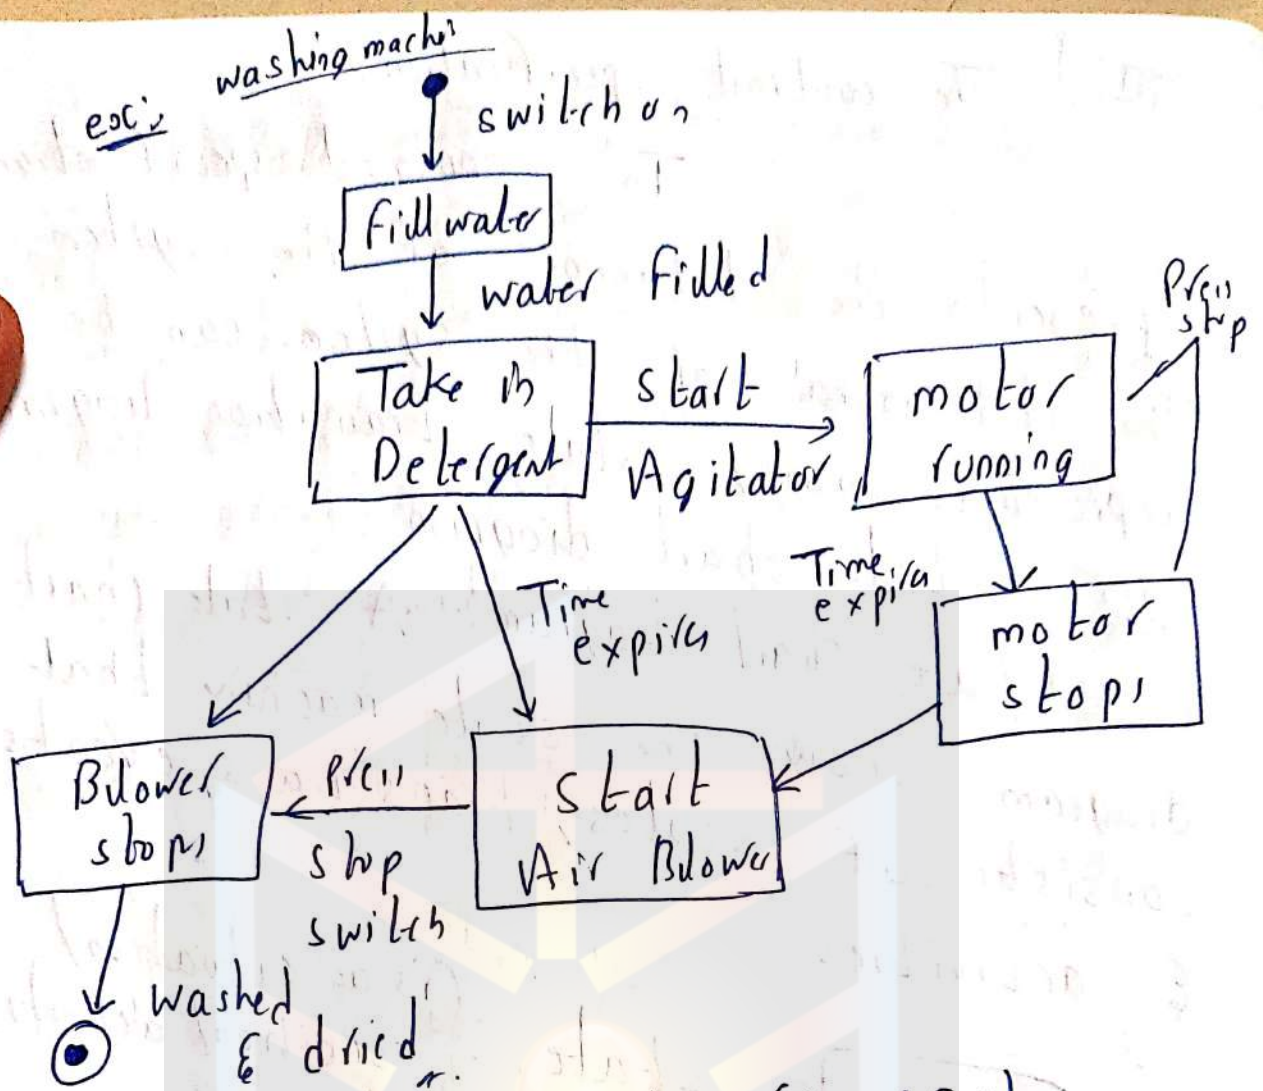 washing machi
ex:
switch on
Fill water
water Filled
Take in
Detergent
Start
Agitator
motor
running
Press
stop
Time
expires
Time
expires
motor
stops
Blower
stops
Press
stop
switch
Start
Air Blower
washed
& dried